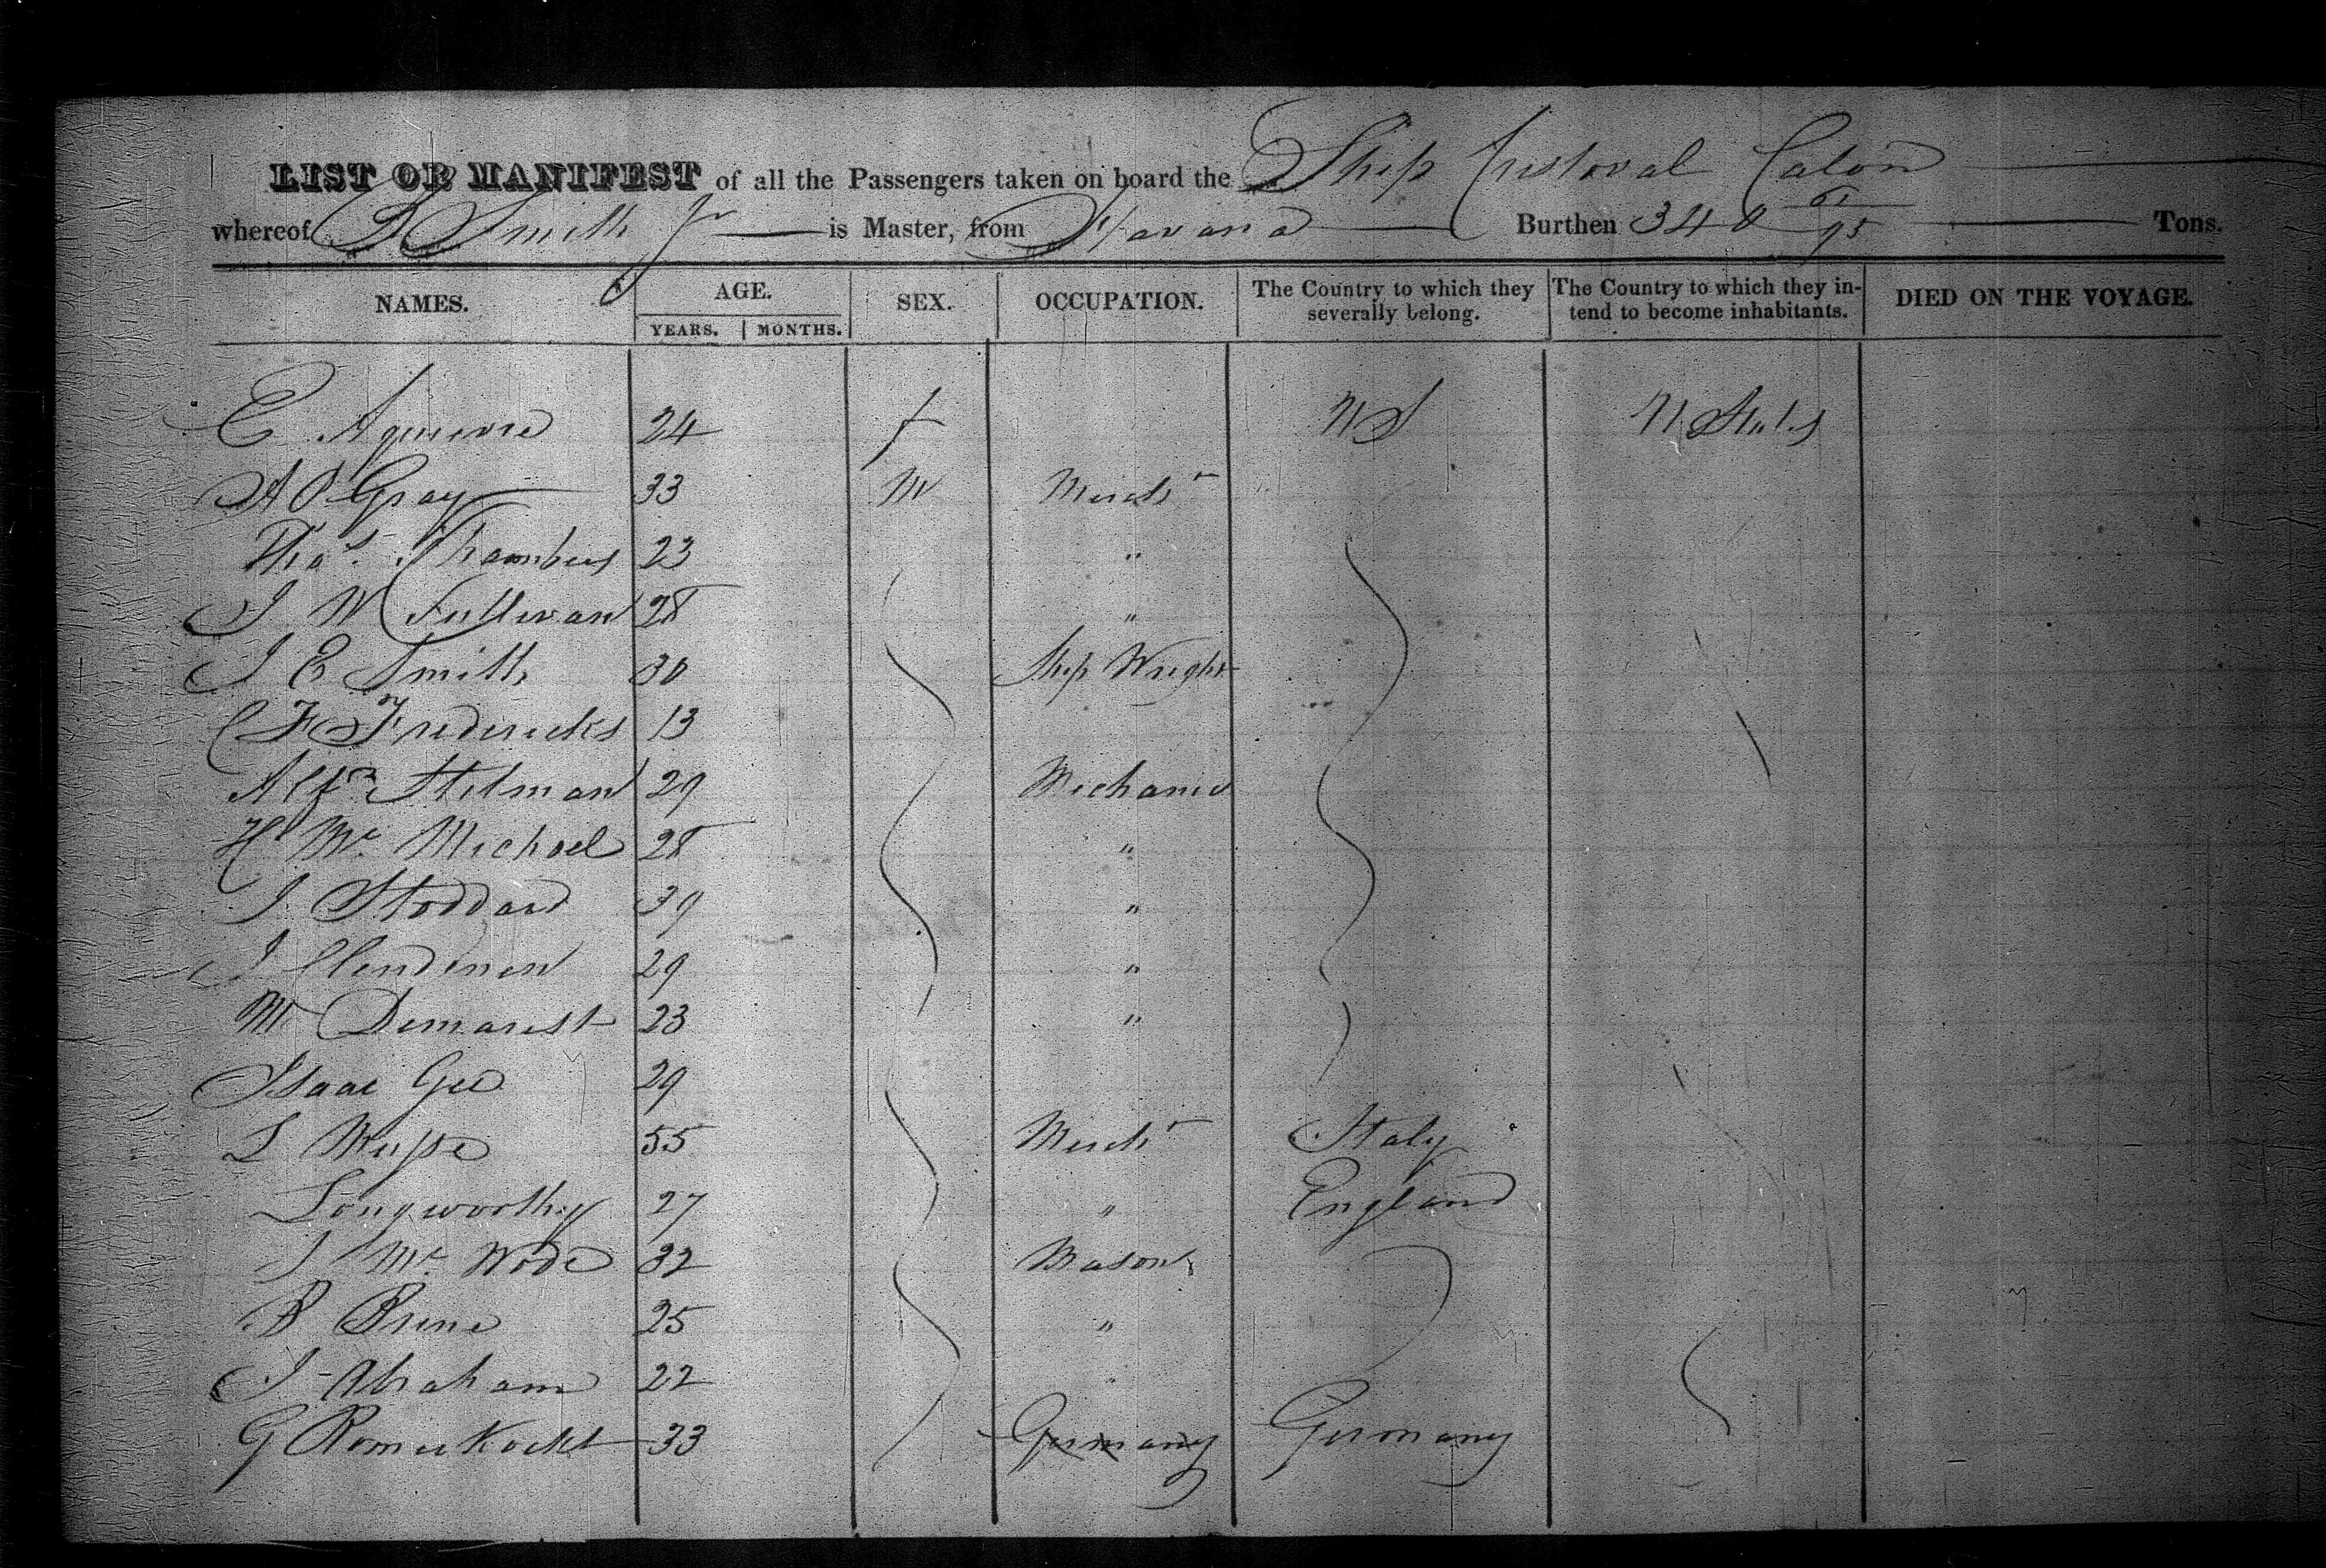 LIST OR MANIFEST of all the Passengers taken on board the Ship Cristoval Colon
whereof B Smith Jr is Master, from Havana Burthen 340 61/95 Tons.
NAMES. AGE. YEARS. MONTHS. SEX. OCCUPATION. The Country to which they severally belong. The Country to which they intend to become inhabitants. DIED ON THE VOYAGE.
E 24 f U S U. States
A O Gray 33 M Mercht
Thos. Chambers 23 "
J W Sullivan 28 "
J E Smith 30 Ship Wright
C F Fredericks 13
Alfd Stelman 29 Mechanic
H Mc. Michael 28 "
J. Stoddard 39 "
J Clendenen 29 "
M Demarest 23 "
Isaac Gee 29
L 55 Mercht Italy
Longworthy 27 " England
J Mc. Wade 32 Mason
B Brene 25 "
J Abraham 22
G 33 Germany Germany